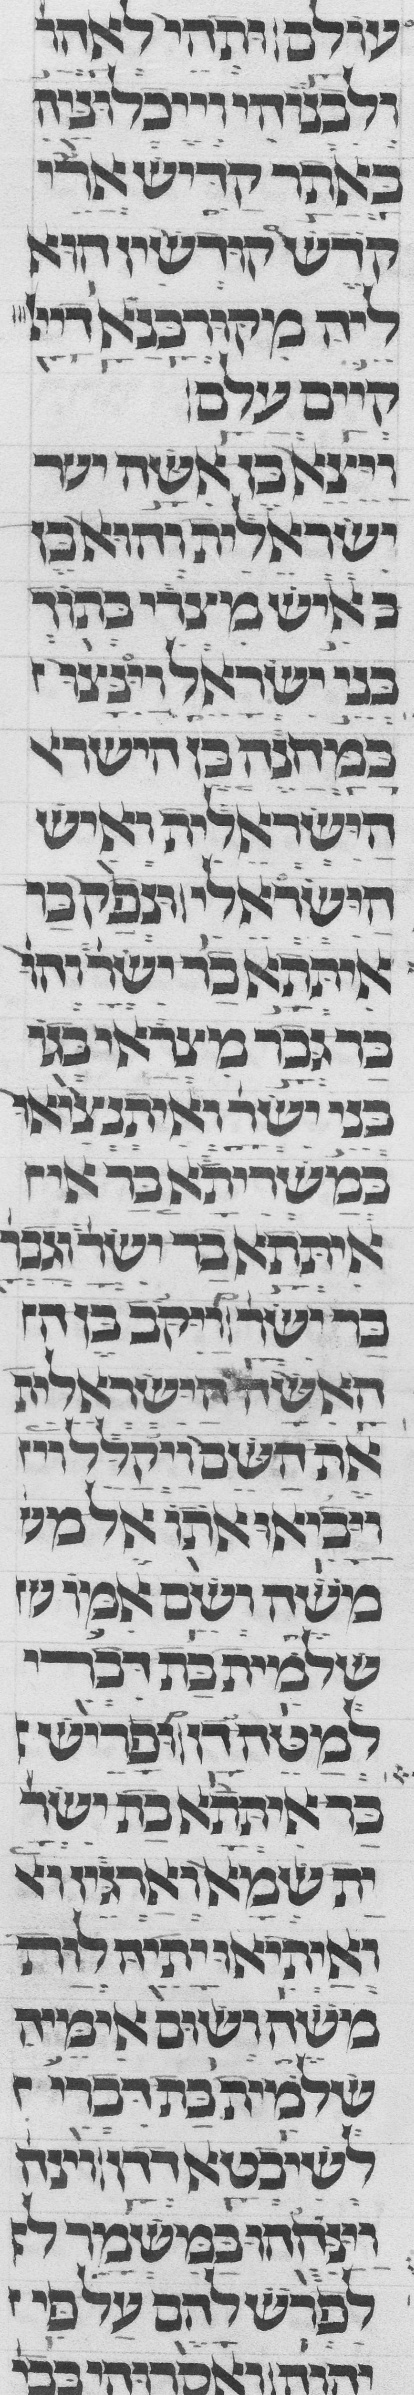 עולם ותהי לאהר
ולבנוהי וייכלוניה
באתר קדיש ארי
קדש קודשין הוא
ליה מקורבנא דייי
קיים עלם
ויצא בן אשה
ישראלית והוא בן
איש מצרי בתוך
בני ישראל וינצו
במחנה בן הישרא
הישראלית ואיש
הישראלי ונפק בר
איתתא בר ישר והו
בר גבר מצראי בגו
בני ישר ואיתנציאו
במשריתא בר
איתתא בר ישר וגבר
בר ישר ויקב בן
האשה הישראלית
את השם ויקלל
ויביאו אתו אל מש
משה ושם אמו
שלמית בת דברי
למטה דן ופריש
בר איתתא בת ישר
ית שמא וארגיז
ואיתיאו יתיה לות
משה ושום אימיה
שלמית בת דברי
לשיבטא דדן
וינחהו במשמר
לפרש להם על פי
יהוה ואסרוהי בבי